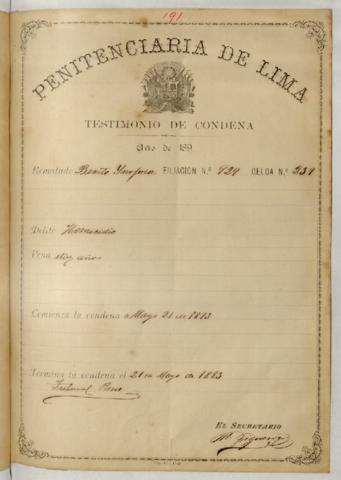 191
PENITENCIARIA DE LIMA
TESTIMONIO DE CONDENA
Año de 189
Rematado Benito FILIACION N.º 929 CELDA N.º 231
Delito Homicidio
Pena diez años
Comienza la condena a Mayo 21 de 1873
Termina la condena el 21 de Mayo de 1883
Tribunal
EL SECRETARIO